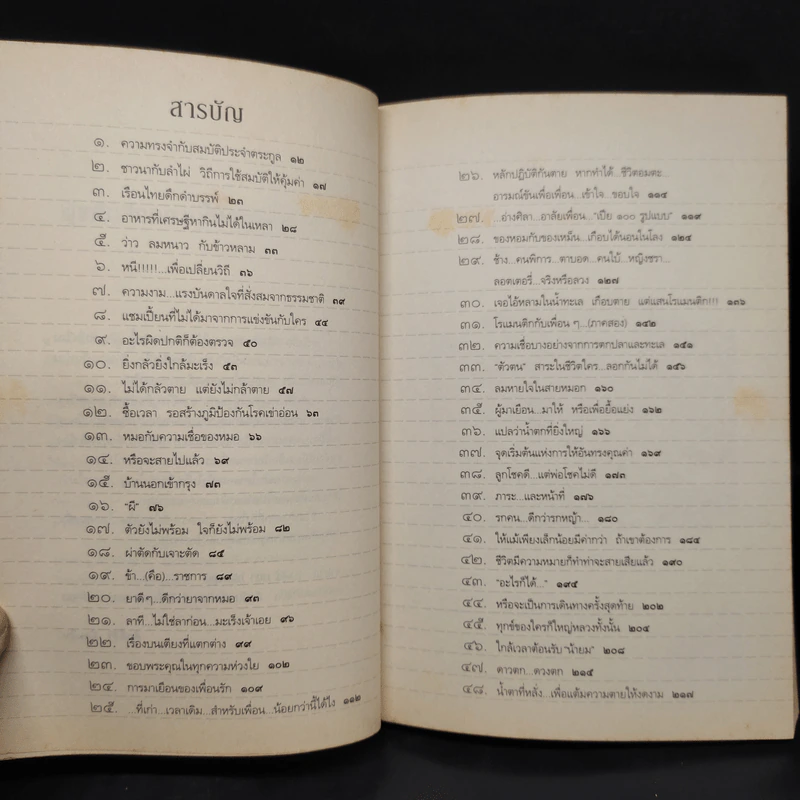 สารบัญ
๑. ความทรงจำกับสมบัติประจำตระกูล ๑๒
๒. ชาวนากับลำไผ่ วิถีการใช้สมบัติให้คุ้มค่า ๑๗
๓. เรือนไทยดึกดำบรรพ์ ๒๓
๔. อาหารที่เศรษฐีหากินไม่ได้ในเหลา ๒๘
๕. ว่าว ลมหนาว กับข้าวหลาม ๓๓
๖. หนี!!!!!...เพื่อเปลี่ยนวิถี ๓๖
๗. ความงาม...แรงบันดาลใจที่สั่งสมจากธรรมชาติ ๓๙
๘. แชมเปี้ยนที่ไม่ได้มาจากการแข่งขันกับใคร ๔๔
๙. อะไรผิดปกติก็ต้องตรวจ ๕๐
๑๐. ยิ่งกลัวยิ่งใกล้มะเร็ง ๕๓
๑๑. ไม่ได้กลัวตาย แต่ยังไม่กล้าตาย ๕๗
๑๒. ซื้อเวลา รอสร้างภูมิป้องกันโรคเข่าอ่อน ๖๓
๑๓. หมอกับความเชื่อของหมอ ๖๖
๑๔. หรือจะสายไปแล้ว ๖๙
๑๕. บ้านนอกเข้ากรุง ๗๓
๑๖. "ผี" ๗๖
๑๗. ตัวยังไม่พร้อม ใจก็ยังไม่พร้อม ๘๒
๑๘. ผ่าตัดกับเจาะตัด ๘๕
๑๙. ข้า...(คือ)...ราชการ ๘๙
๒๐. ยาดีๆ...ดีกว่ายาจากหมอ ๙๓
๒๑. ลาที...ไม่ใช่ลาก่อน...มะเร็งเจ้าเอย ๙๖
๒๒. เรื่องบนเตียงที่แตกต่าง ๙๙
๒๓. ขอบพระคุณในทุกความห่วงใย ๑๐๒
๒๔. การมาเยือนของเพื่อนรัก ๑๐๙
๒๕. ...ที่เก่า...เวลาเดิม...สำหรับเพื่อน...น้อยกว่านี้ได้ไง ๑๑๒
๒๖. หลักปฏิบัติกันตาย หากทำได้...ชีวิตอมตะ
อารมณ์ขันเพื่อเพื่อน...เข้าใจ...ขอบใจ ๑๑๔
๒๗. ...อ่างศิลา...อาลัยเพื่อน..."เปีย ๑๐๐ รูปแบบ" ๑๑๙
๒๘. ของหอมกับของเหม็น...เกือบได้นอนในโลง ๑๒๔
๒๙. ช้าง...คนพิการ...ตาบอด...คนใบ้...หญิงชรา...
ลอตเตอรี่...จริงหรือลวง ๑๒๗
๓๐. เจอไอ้หลามในน้ำทะเล เกือบตาย แต่แสนโรแมนติก!!! ๑๓๖
๓๑. โรแมนติกกับเพื่อน ๆ...(ภาคสอง) ๑๔๒
๓๒. ความเชื่อบางอย่างจากการตกปลาและทะเล ๑๕๑
๓๓. "ตัวตน" สาระในชีวิตใคร...ลอกกันไม่ได้ ๑๕๖
๓๔. ลมหายใจในสายหมอก ๑๖๐
๓๕. ผู้มาเยือน...มาให้ หรือเพื่อยื้อแย่ง ๑๖๒
๓๖. แปลว่าน้ำตกที่ยิ่งใหญ่ ๑๖๖
๓๗. จุดเริ่มต้นแห่งการให้อันทรงคุณค่า ๑๖๙
๓๘. ลูกโชคดี...แต่พ่อโชคไม่ดี ๑๗๓
๓๙. ภาระ...และหน้าที่ ๑๗๖
๔๐. รกคน...ดีกว่ารกหญ้า... ๑๘๐
๔๑. ให้แม้เพียงเล็กน้อยมีค่ากว่า ถ้าเขาต้องการ ๑๘๔
๔๒. ชีวิตมีความหมายก็ทำท่าจะสายเสียแล้ว ๑๙๐
๔๓. "อะไรก็ได้" ...๑๙๕
๔๔. หรือจะเป็นการเดินทางครั้งสุดท้าย ๒๐๒
๔๕. ทุกข์ของใครก็ใหญ่หลวงทั้งนั้น ๒๐๕
๔๖. ใกล้เวลาต้อนรับ "น้ายม" ๒๐๘
๔๗. ดาวตก...ดวงตก ๒๑๕
๔๘. น้ำตาที่หลั่ง...เพื่อแต้มความตายให้งดงาม ๒๑๗